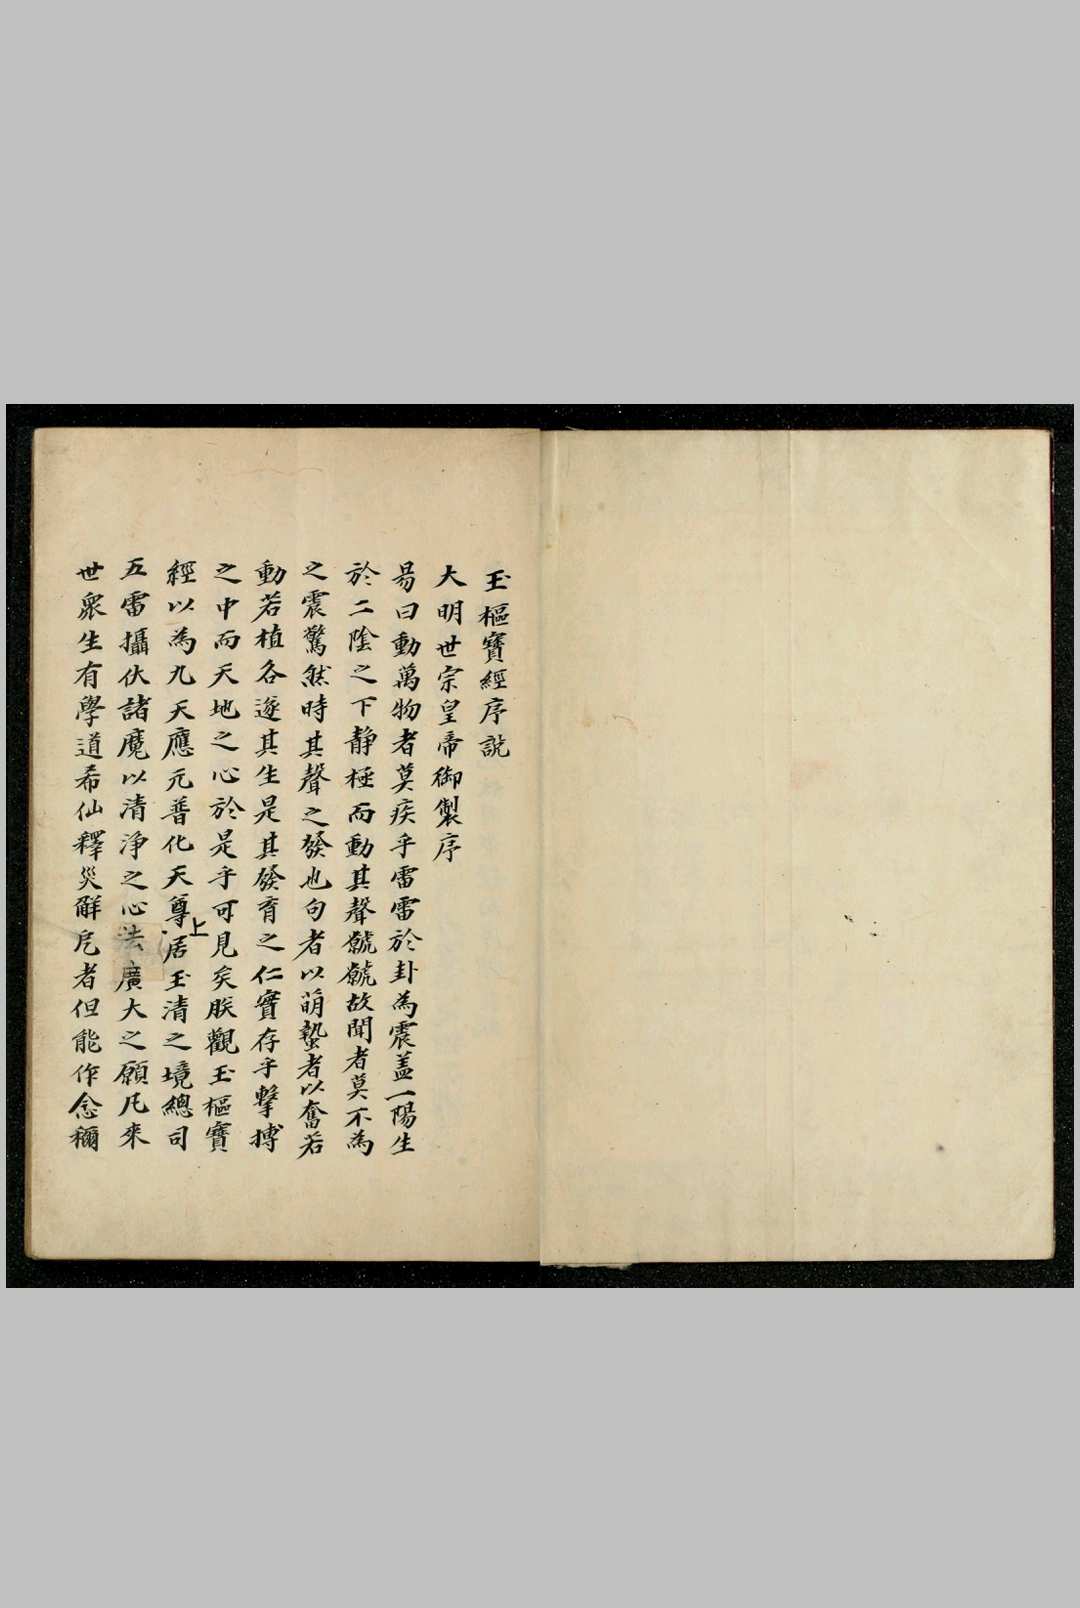 玉樞寶經序說
大明世宗皇帝御製序
易曰動萬物者莫疾乎雷雷於卦為震盖一陽生
於二陰之下靜極而動其聲虩虩故聞者莫不為
之震驚然時其聲之發也句者以萌蟄者以奮若
動若植各遂其生是其發育之仁實存乎擊搏
之中而天地之心於是乎可見矣朕觀玉樞寶
經以為九天應元普化天尊上居玉清之境總司
五雷攝伏諸魔以清淨之心法廣大之願凡來
世衆生有學道希仙釋災解厄者但能作念稱